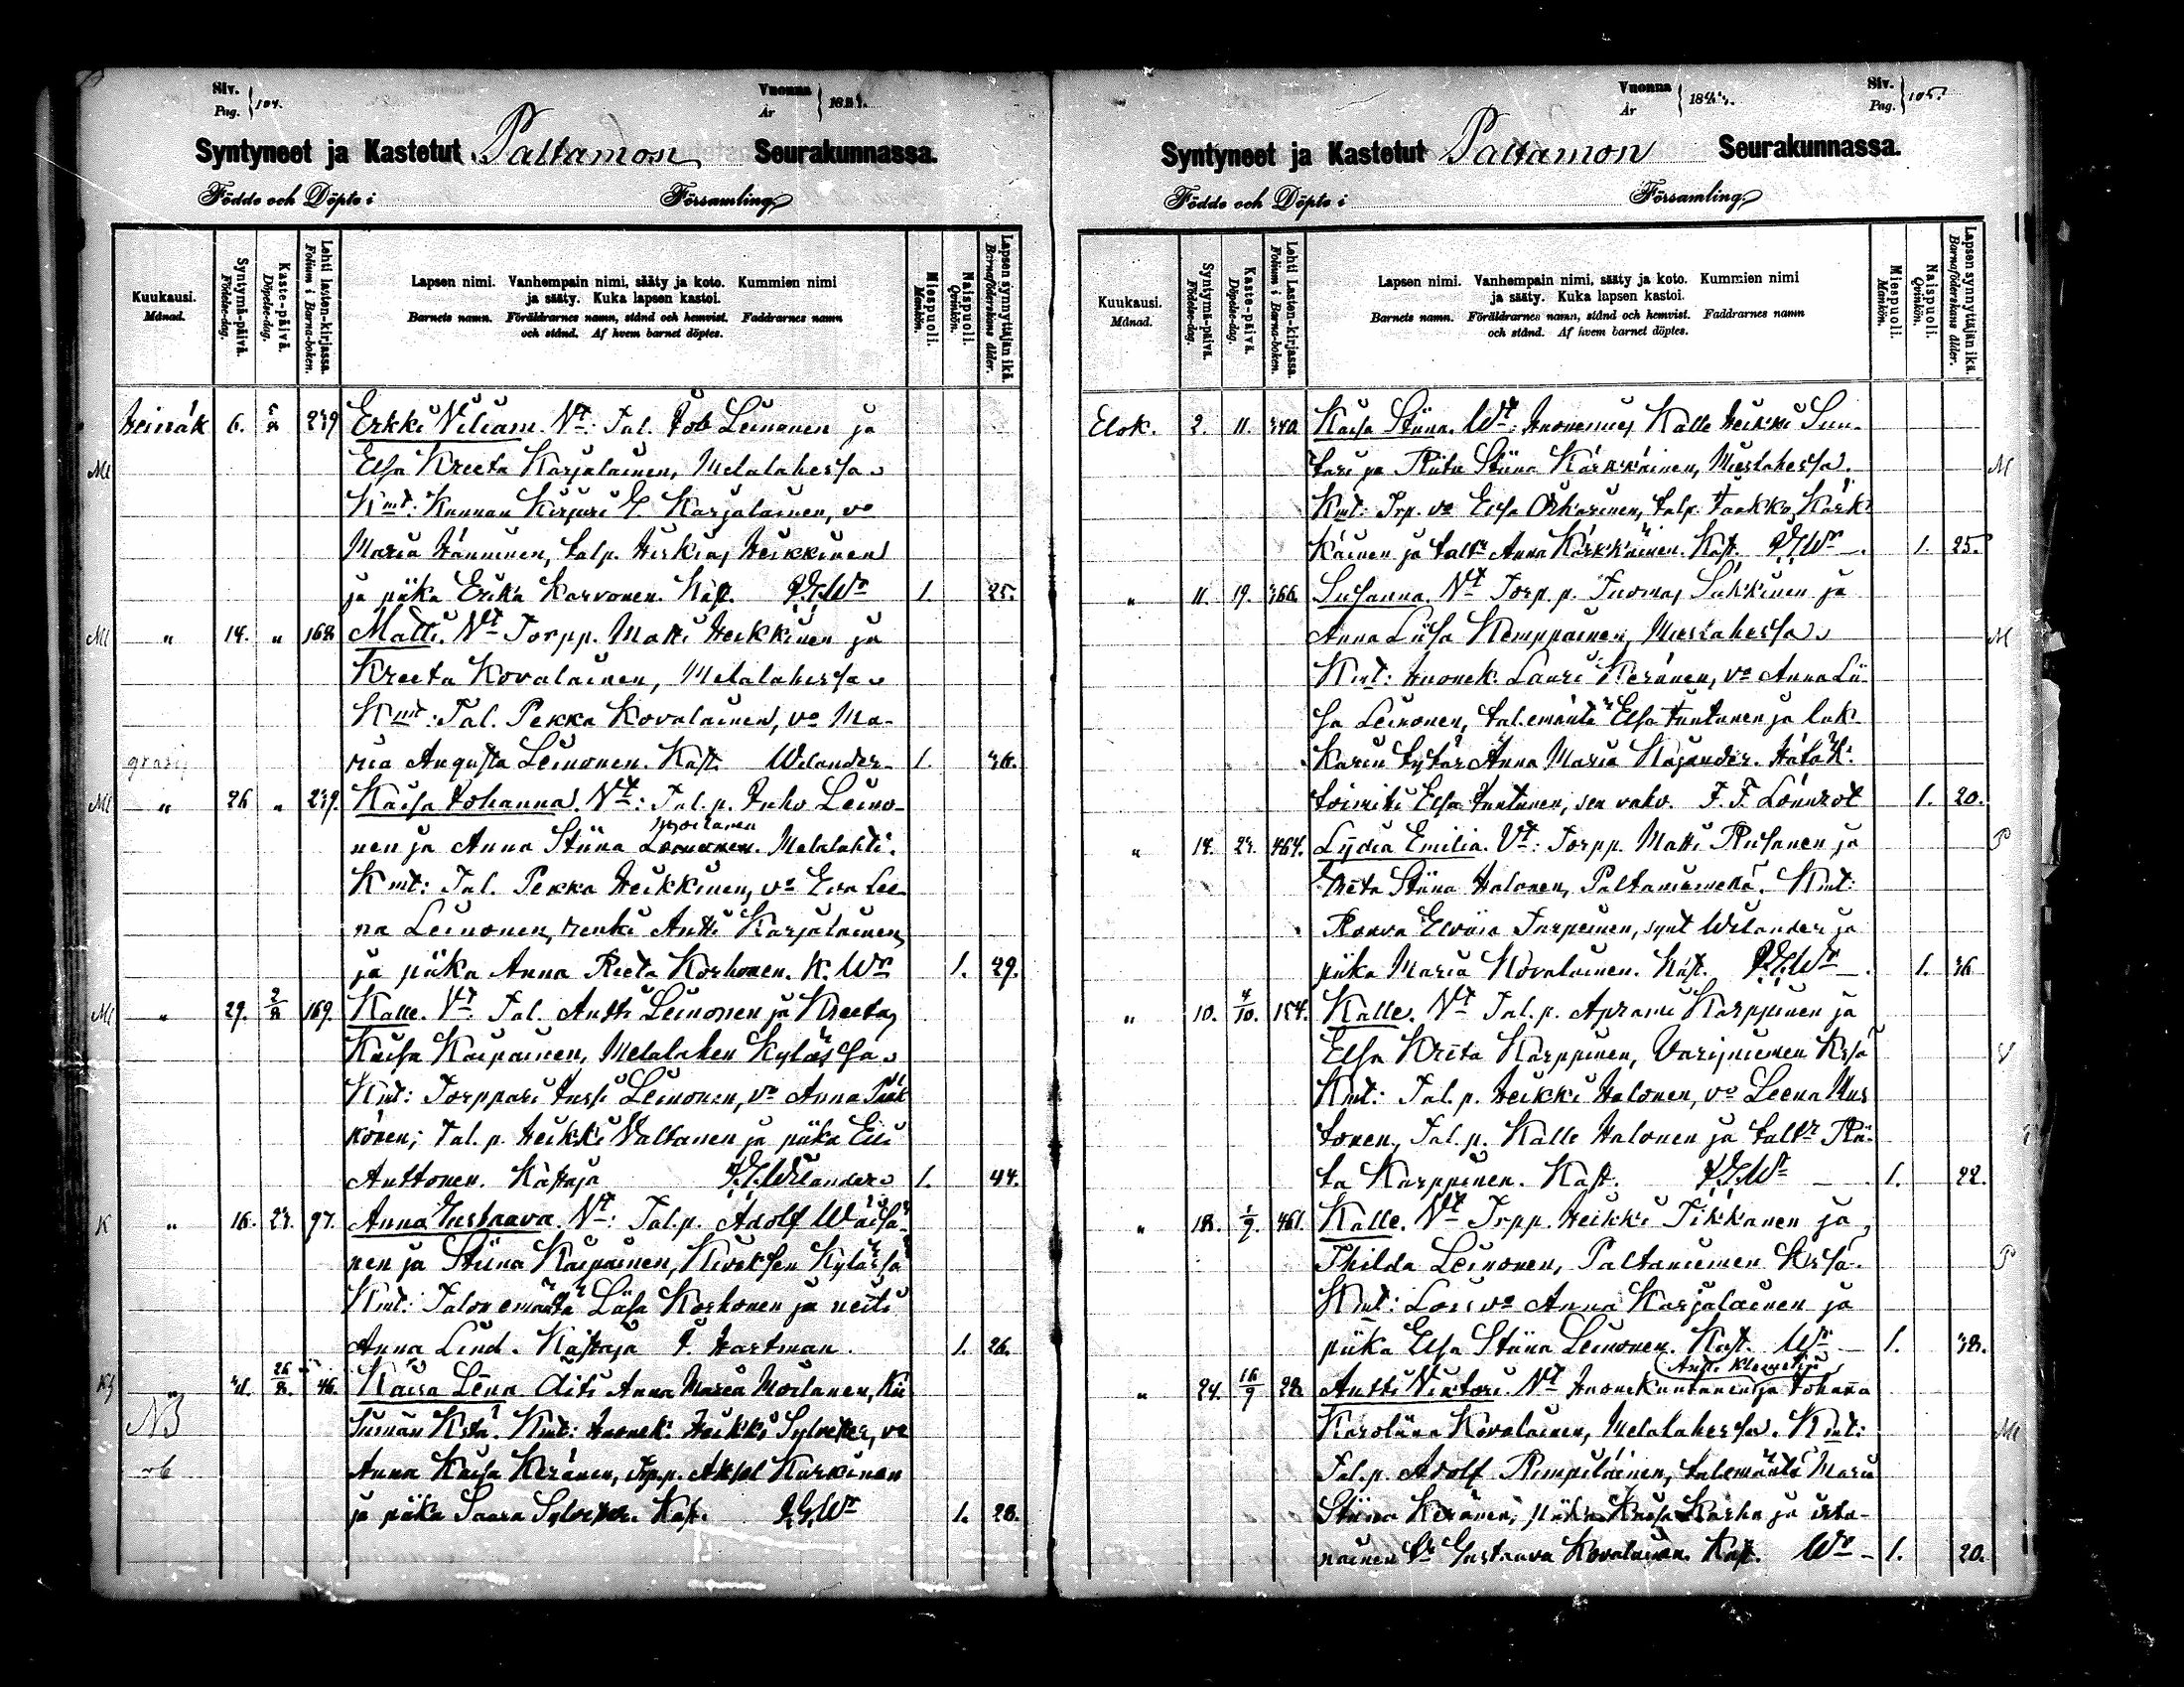 Siv. Pag. 104.
Vuonna År 1881.
Syntyneet ja Kastetut Paltamon Seurakunnassa.
Födde och Döpte i Församling
Kuukausi. Månad.
Syntymä-päivä. Födelse-dag.
Kaste-päivä. Döpelse-dag.
Lehti lasten-kirjassa. Folium i Barna-boken.
Lapsen nimi. Vanhempain nimi, sääty ja koto. Kummien nimi
ja sääty. Kuka lapsen kastoi.
Barnets namn. Föräldrarnes namn, stånd och hemvist. Faddrarnes namn
och stånd. Af hvem barnet döptes.
Miespuoli. Mankön.
Naispuoli. Qvinkön.
Lapsen synnyttäjän ikä. Barnaföderskans ålder.
Heinäk 6. 5/8 239 Erkki Viliam. Vt: Tal. Job Leinonen ja
Ml Elsa Kreeta Karjalainen, Melalahessa.
Kmt: Kunnan Kirjuri E Karjalainen, vo
Maria Hänninen, talp. Heikkinen
ja piika Erika Karvonen. Kast. Wr 1. 25.
Ml " 14. " 168 Matti. Vt Torpp. Matti Heikkinen ja
Kreeta Kovalainen, Melalahessa.
Kmt: Tal. Pekka Kovalainen, vo Ma-
ria Augusta Leinonen. Kast. Welander 1. 36.
Ml " 26 " 239. Kaisa Johanna. Vt: Tal. p. Juho Leino-
Moilanen
nen ja Anna Stiina Leinonen. Melalahti.
Kmt: Tal. Pekka Heikkinen, vo Eva Lee-
na Leinonen, renki Antti Karjalainen,
ja piika Anna Reeta Korhonen. K. Wr 1. 29.
Ml " 29. 2/8 169. Kalle. Vt Tal. Antti Leinonen ja Kreeta
Kaisa Kaipainen, Melalahen Kylässä.
Kmt: Torppari Jussi Leinonen, vo Anna
könen; Tal. p. Heikki Valtanen ja piika
Anttonen. Kastaja Welander 1. 44.
K " 16. 23. 97. Anna Gustaava. Vt: Tal. p. Adolf Waisa-
nen ja Stiina Kaipainen, Kiveksen Kylässä
Kmt: Talon emäntä Liisa Korhonen ja neiti
Anna Lind. Kastaja Hartman. 1. 26.
" 31. 26/8. 46. Kaisa Lena. Äiti Anna Maria Moilanen,
NB
Kmt: Huonek. Heikki Sylvester, vo
Anna Kaisa Keränen, p. Aksel Karkinen
ja piika Saara Sylvester. Kast. Wr 1. 28.
Vuonna År 188
Siv. Pag. 105.
Syntyneet ja Kastetut Paltamon Seurakunnassa.
Födde och Döpte i Församling.
Kuukausi. Månad.
Syntymä-päivä. Födelse-dag.
Kaste-päivä. Döpelse-dag.
Lehti Lasten-kirjassa. Folium i Barna-boken.
Lapsen nimi. Vanhempain nimi, sääty ja koto. Kummien nimi
ja sääty. Kuka lapsen kastoi.
Barnets namn. Föräldrarnes namn, stånd och hemvist. Faddrarnes namn
och stånd. Af hvem barnet döptes.
Miespuoli. Mankön.
Naispuoli. Qvinkön.
Lapsen synnyttäjän ikä. Barnaföderskans ålder.
Elok. 2. 11. 340 Kaisa Stiina. Vt: Kalle Heikki Sun-
tari ja Riita Stiina Kärkkäinen, Mieslahessa. M
Kmt: Trp. vo Eisa Oikarinen, talp. Jaakko Kärk-
käinen ja taltr Anna Kärkkäinen. Kast. Wr 1. 25.
" 11. 19. 366. Susanna. Vt Torp. p. Tuomas Sakkinen ja
Anna Liisa Kemppainen, Mieslahessa. M
Kmt: Huonek. Lauri Keränen, vo Anna Lii-
sa Leinonen, tal.emäntä Elsa Tuntunen ja luk-
karin tytär Anna Maria Kajander. Hätä K.
toimitti Elsa Tuntunen, sen vahv. F. F. Lönnrot 1. 20.
" 14. 23. 464. Lydia Emilia. Vt: Torpp. Matti Rusanen ja P
Kreta Stiina Halonen, Paltaniemellä. Kmt:
Rouva Elviia Tarpeinen, synt Welander ja
piika Maria Kovalainen. Kast. Wr 1. 36
" 10. 4/10. 154. Kalle. Vt Tal. p. Aprami Karppinen ja
Elsa Krita Karppinen, Varisniemen V
Kmt: Tal. p. Heikki Halonen, vo Leena Mus
tonen, Tal. p. Kalle Halonen ja taltr Rii-
ta Karppinen. Kast. Wr 1. 22.
" 18. 1/9. 461. Kalle. Vt Trpp. Heikki Tikkanen ja
Thilda Leinonen, Paltaniemen P
Kmt: Lois vo Anna Karjalainen ja
piika Elsa Stiina Leinonen. Kast. Wr 1. 38.
" 24. 16/9 28 Antti Viktori. Vt Huonekuntanen ja Johanna
Karoliina Kovalainen, Melalahessa. Kmt: Ml
Tal. p. Adolf Rimpiläinen, talemäntä Maria
Stiina Keränen, piika Kaisa Karhu ja itse-
näinen tr Gustaava Kovalainen. Kast. Wr 1. 20.